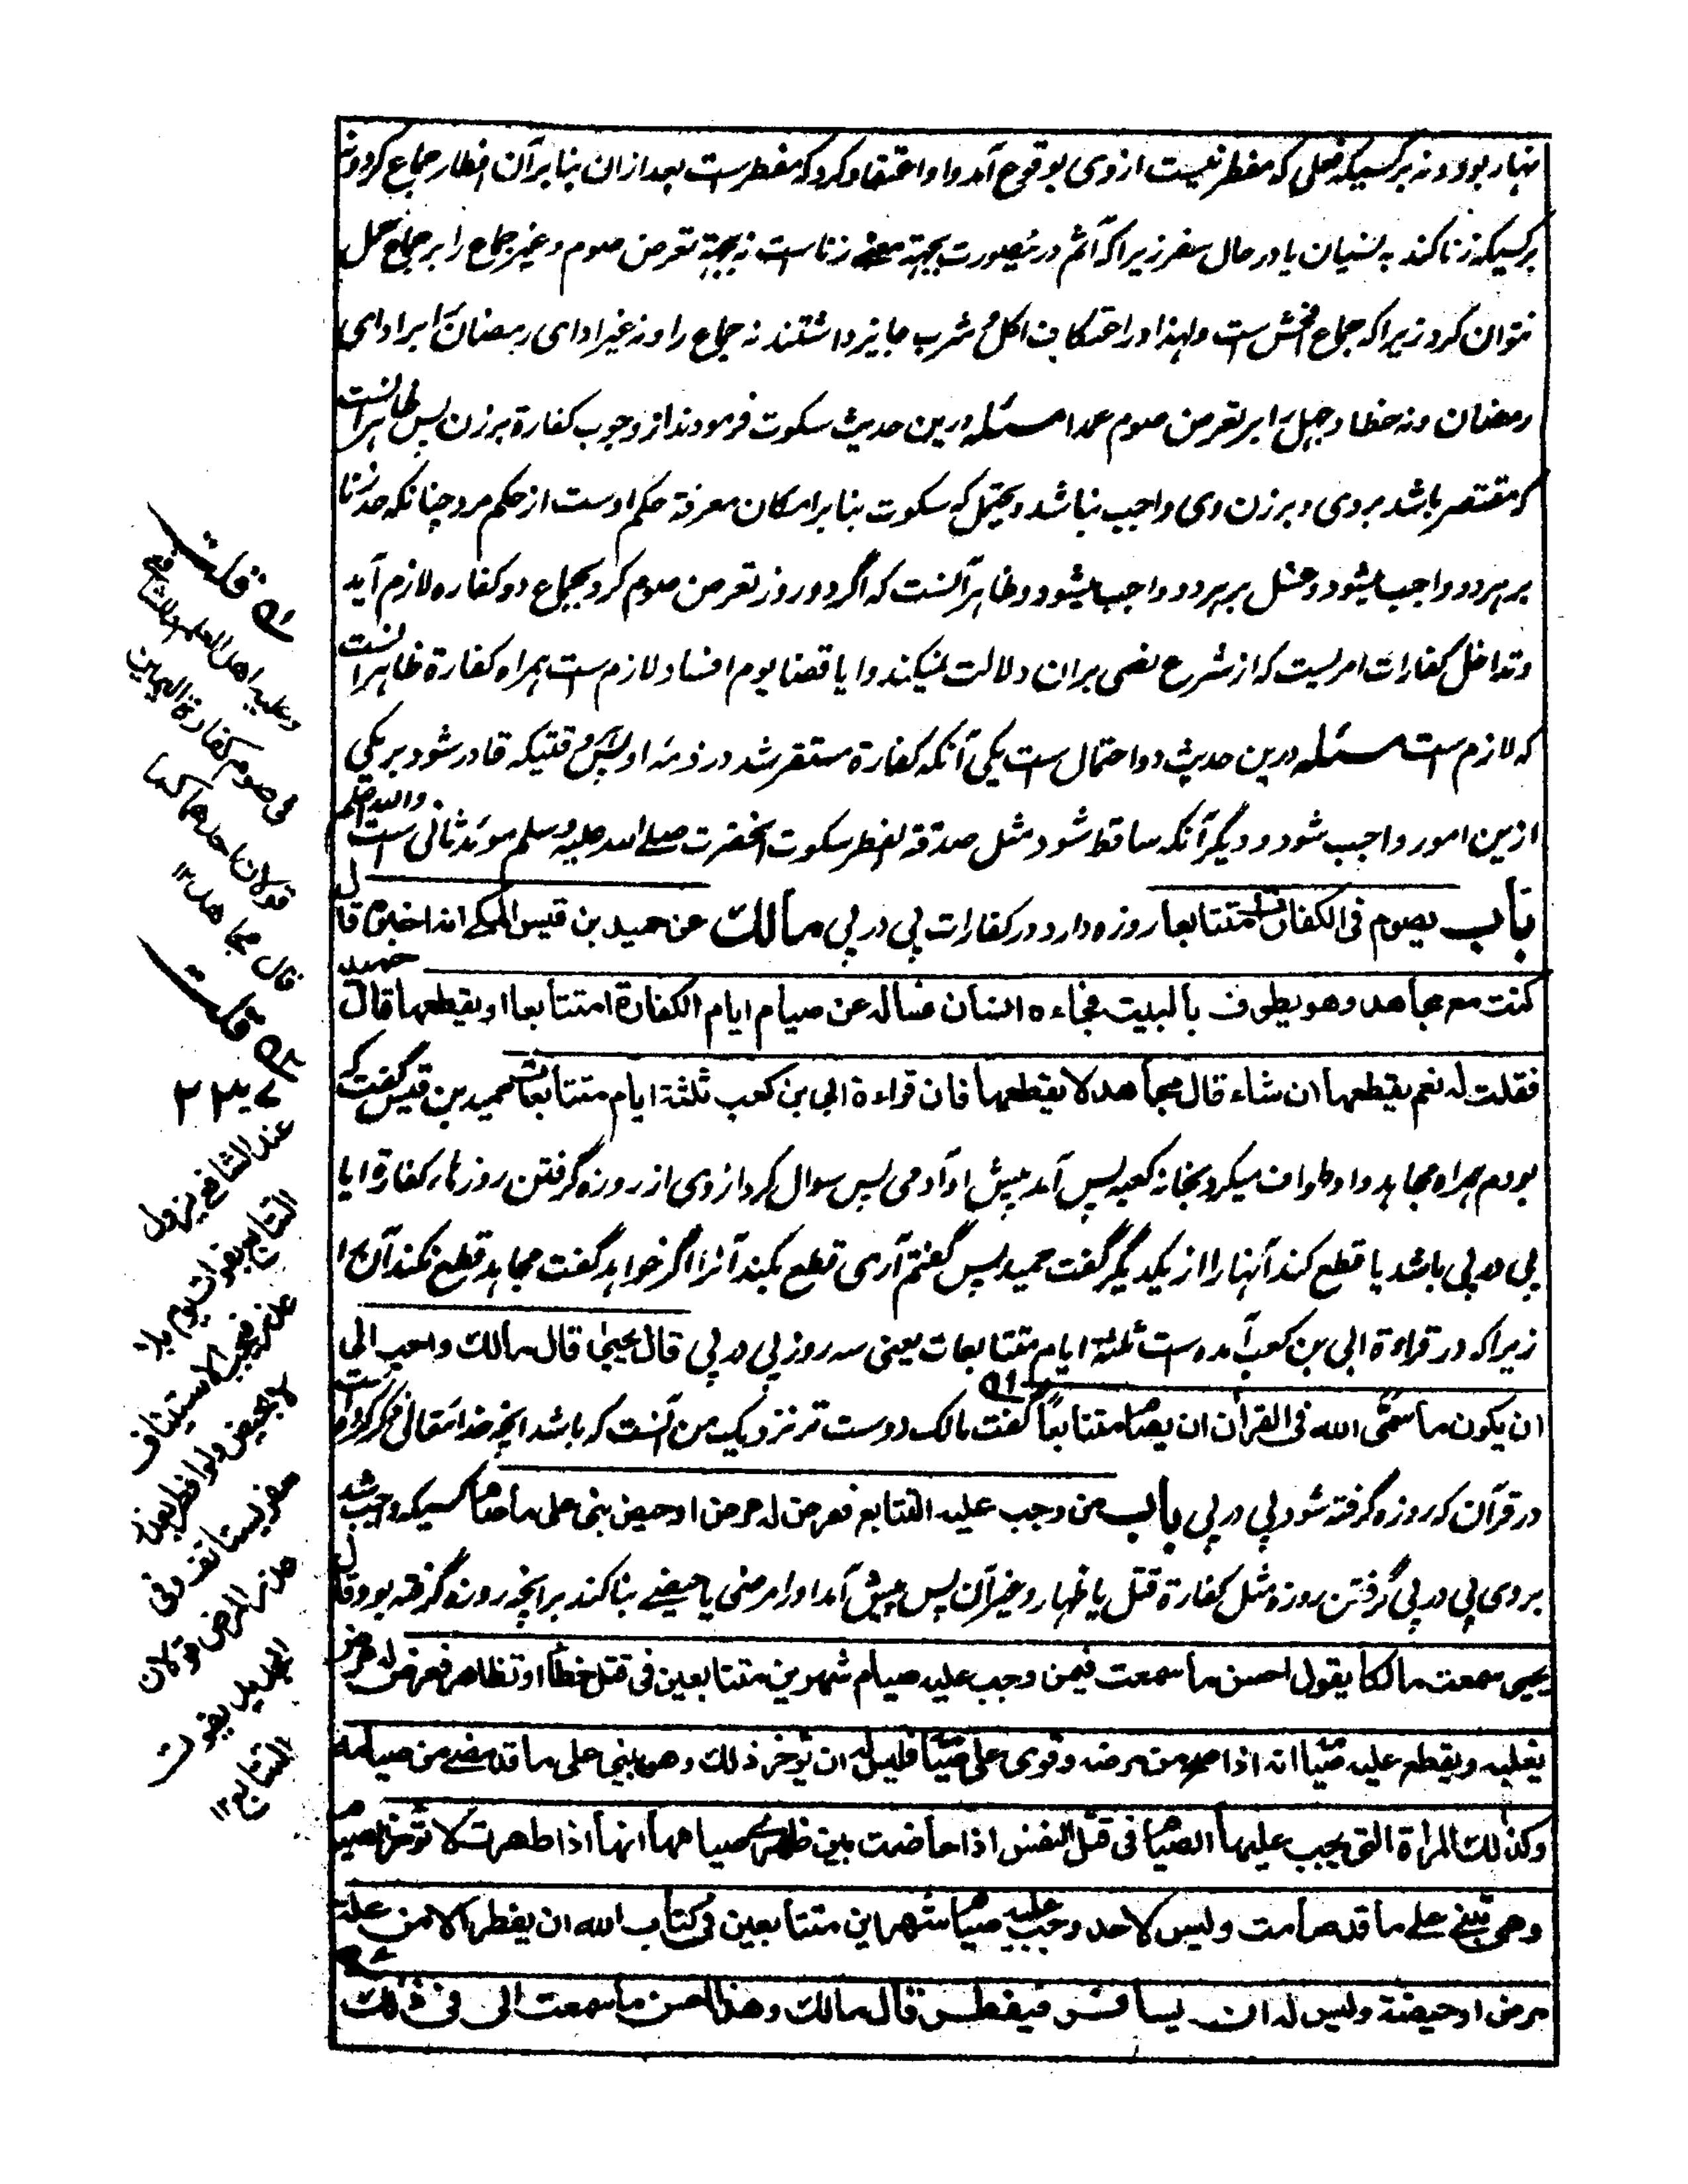 نهار بود و نه بر کسیکه فعلی که مفطر نیست از وی بوقوع آمد و او اعتقاد کرد که مفطر ست بعد ازان بنا بر آن افطار جماع کرد و نه
بر کسیکه زنا کند به نسیان یا در حال سفر زیرا که آثم درینصورت بجهة زنا ست نه بجهة تعرض صوم و غیر جماع را بر جماع حمل
نتوان کرد زیرا که جماع افحش ست و لهذا در اعتکاف اکل و شرب جایز داشتند نه جماع را و نه غیر ادای رمضان را بر ادای
رمضان و نه خطا و جهل را بر تعرض صوم عمدا مسئله درین حدیث سکوت فرمودند از وجوب کفارة بر زن پس ظاهر آنست
که مقتصر باشد بر وی و بر زن وی واجب نباشد و یحتمل که سکوت بنا بر امکان معرفة حکم اوست از حکم مرد چنانکه حد زنا
بر هر دو واجب میشود و غسل بر هر دو واجب میشود و ظاهر آنست که اگر دو روز تعرض صوم کرد بجماع دو کفاره لازم آید
و تداخل کفارات امریست که از شرع نصی بران دلالت نمیکند و ایا قضا یوم افساد لازم ست همراه کفارة ظاهر آنست
که لازم ست مسئله درین حدیث دو احتمال ست یکی آنکه کفارة مستقر شد در ذمه او پس وقتیکه قادر شود بر یکی
ازین امور واجب شود و دیگر آنکه ساقط شود مثل صدقة الفطر سکوت آنحضرت صلے الله علیه وسلم موید ثانی است والله اعلم
باب یصوم فی الکفارات متتابعا روزه دارد در کفارات پی در پی مالك عن حمید بن قیس المکے انه اخبره قال
کنت مع مجاهد وهو یطوف بالبیت فجاءه انسان فسأله عن صیام ایام الکفارة امتتابعا او یقطعها قال حمید
فقلت له نعم یقطعها ان شاء قال مجاهد لا یقطعها فان قراءة ابی بن کعب ثلثة ایام متتابعات حمید بن قیس گفت که
بودم همراه مجاهد و او طواف میکرد بخانه کعبه پس آمد پیش او آدمی پس سوال کرد از وی از روزه گرفتن روزهای کفارة ایا
پی در پی باشد یا قطع کند آنها را از یکدیگر گفت حمید پس گفتم آری قطع بکند آنرا اگر خواهد گفت مجاهد قطع نکند آن را
زیرا که در قراءة ابی بن کعب آمده ست ثلثة ایام متتابعات یعنی سه روز پی در پی قال یحیی قال مالك واحب الی
ان یکون ما سمی الله فی القرآن ان یصام متتابعا گفت مالک دوست تر نزدیک من آنست که باشد آنچه خدا تعالی ذکر کرده است
در قرآن که روزه گرفته شود پی در پی باب من وجب علیه التتابع فعرض له مرض او حیض بنی علی ما صام کسیکه واجب شد
بر وی پی در پی گرفتن روزه مثل کفارة قتل یا ظهار و غیر آن پس پیش آمد او را مرضی یا حیضے بنا کند بر آنچه روزه گرفته بود قال
یحیی سمعت مالکا یقول احسن ما سمعت فیمن وجب علیه صیام شهرین متتابعین فی قتل خطأ او تظاهر فعرض له مرض
یغلبه ویقطع علیه صیامه انه اذا صح من مرضه وقوی علی صیام فلیس له ان یؤخر ذلك وهو یبنی علی ما قد مضے من صیامه
وکذلك المراة التی یجب علیها الصیام فی قتل النفس اذا حاضت بین ظهری صیامها انها اذا طهرت لا تؤخر الصیام
وهی تبنی علے ما قد صامت ولیس لاحد وجب علیه صیام شهرین متتابعین فی کتاب الله ان یفطر الا من علة
مرض او حیضة ولیس له ان یسافر فیفطر قال مالك وهذا احسن ما سمعت الی فی ذلك
قلت
وعلیه اهل العلم وللشافعی
فی صوم کفارة الیمین
قولان احدهما کما
قال مجاهد ۱۲
قلت
عند الشافعی یزول
التتابع بفوات یوم بلا
عذر فیجب الاستیناف
لا بحیض ولو افطر بعذر
سفر یستانف وفی
عذر المرض قولان
الجدید یفوت
التتابع ۱۲